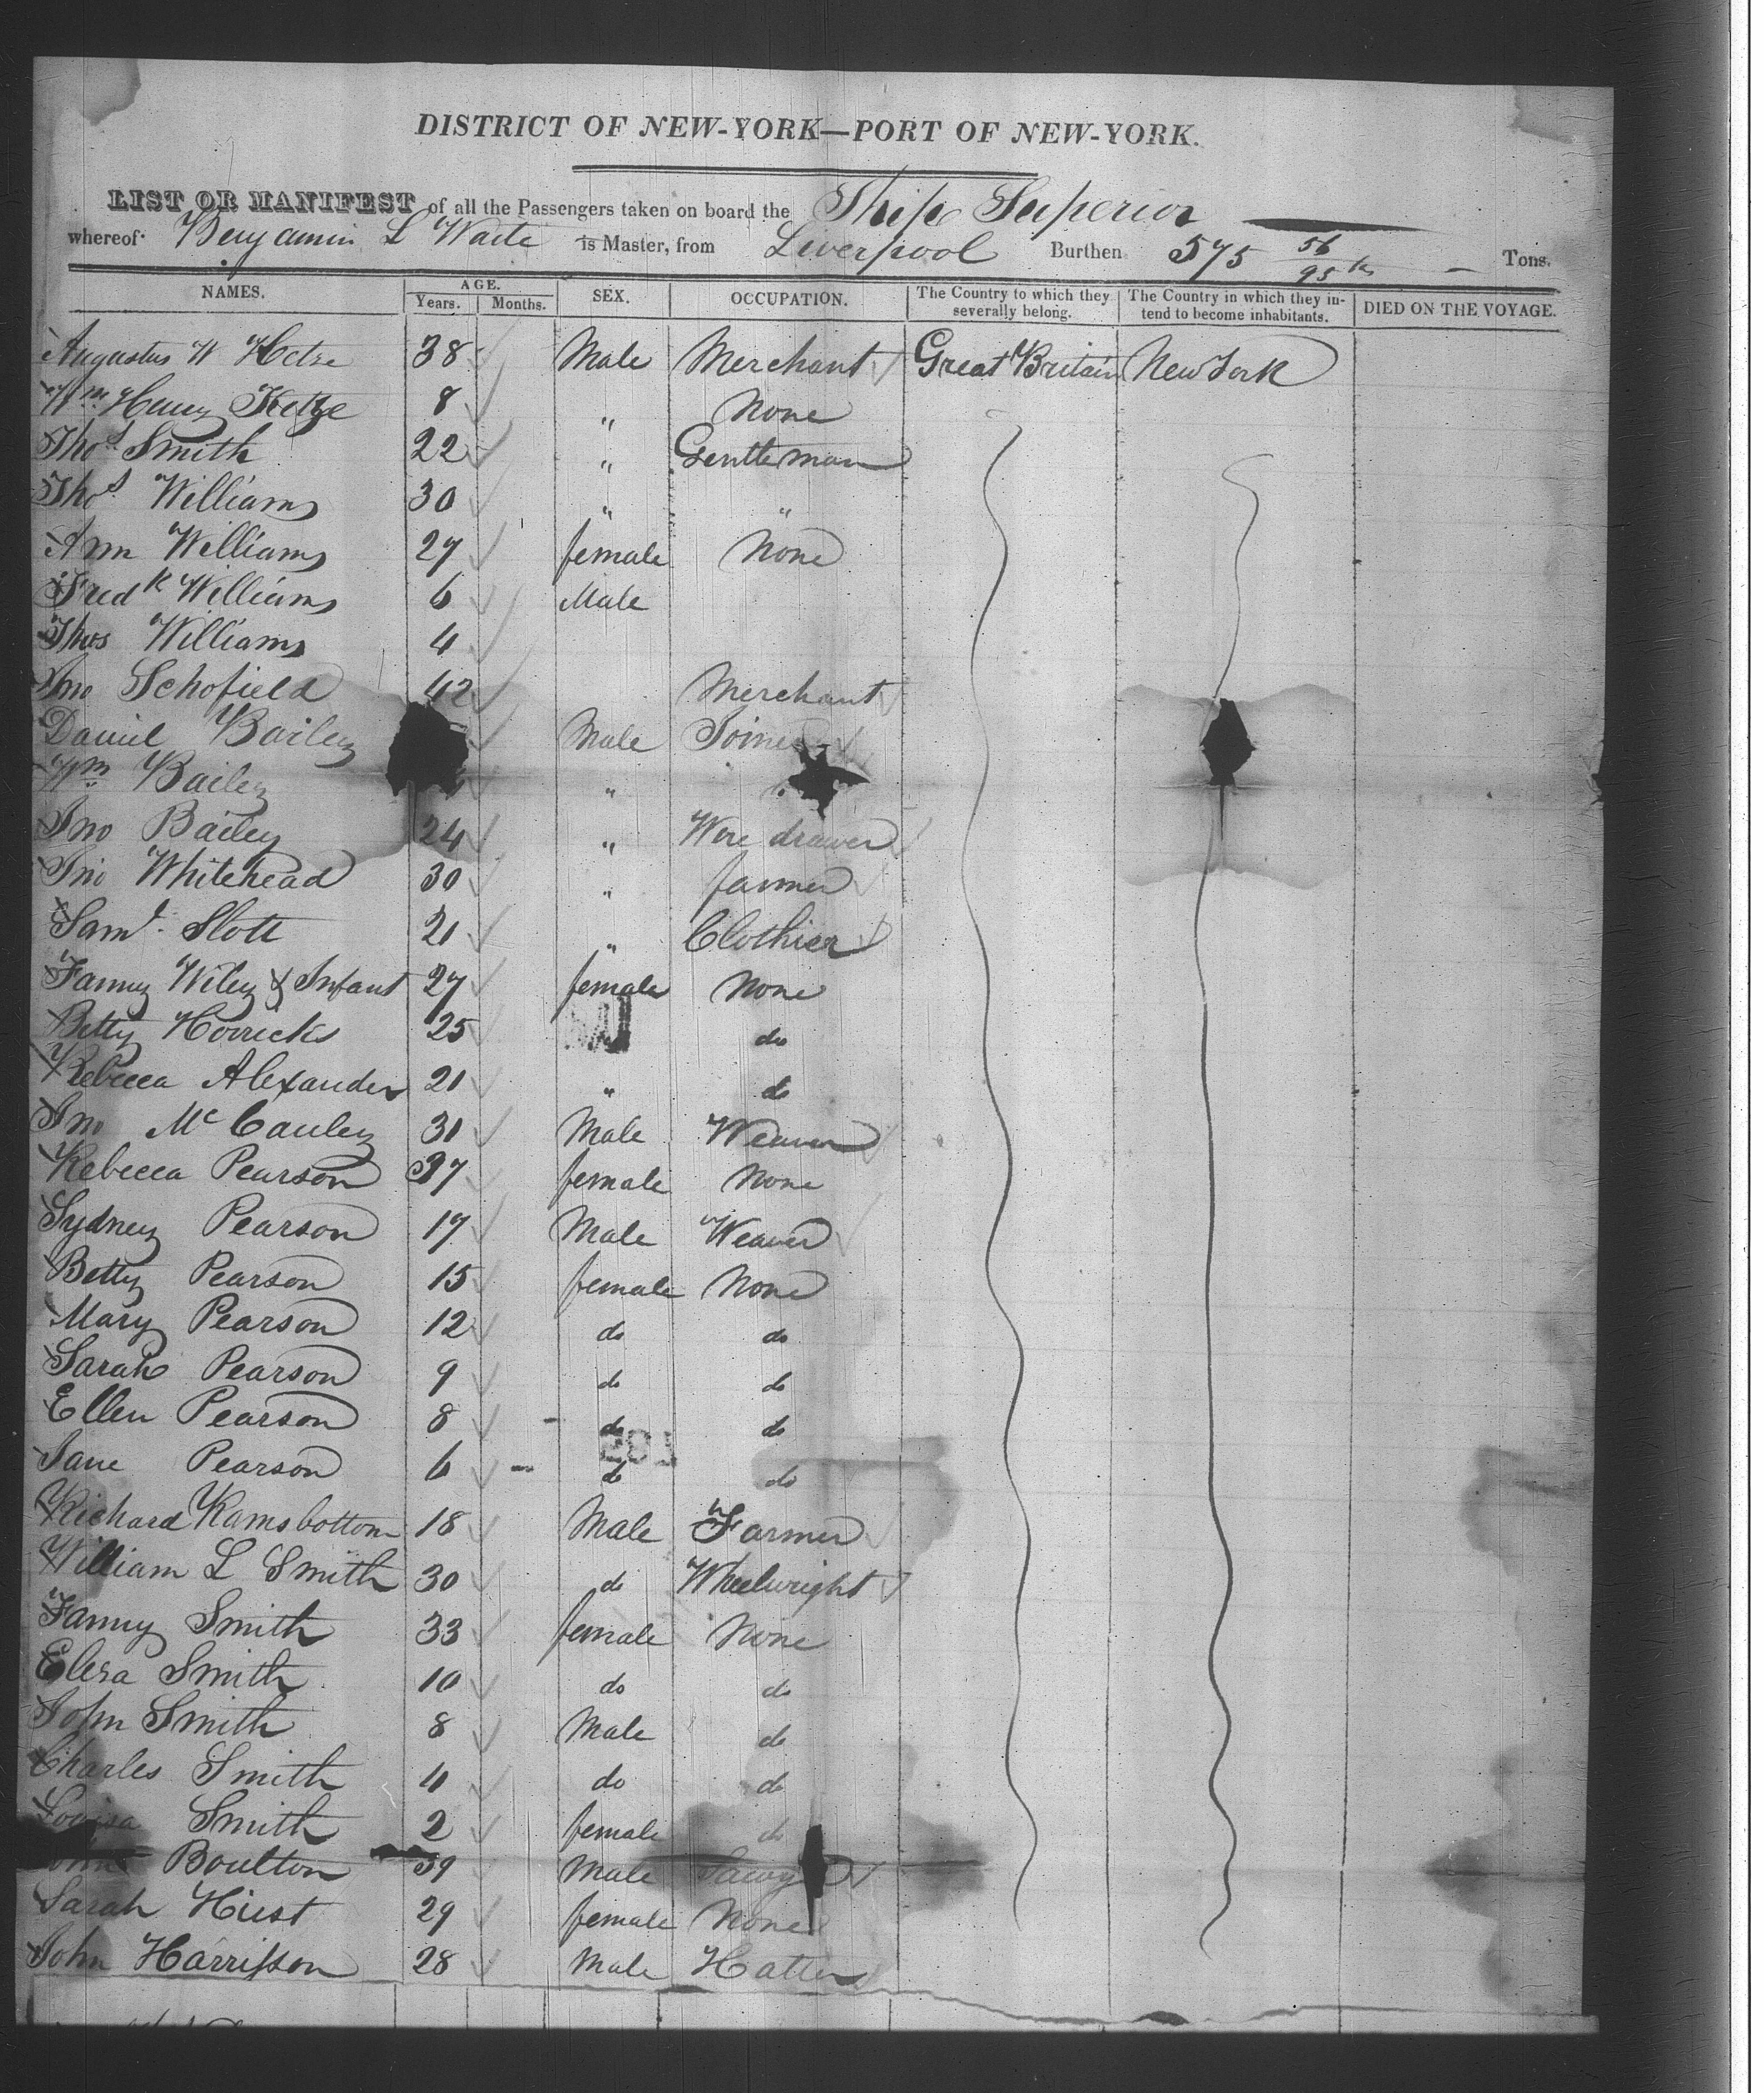 DISTRICT OF NEW-YORK—PORT OF NEW-YORK.
LIST OR MANIFEST of all the Passengers taken on board the Ship Superior
whereof Benjamin L Waite is Master, from Liverpool Burthen 575 56/95ths Tons.
NAMES. AGE. Years. Months. SEX. OCCUPATION. The Country to which they severally belong. The Country in which they intend to become inhabitants. DIED ON THE VOYAGE.
Augustus W 38 Male Merchant Great Britain New York
Wm Henry 8 " None
Thos Smith 22 " Gentleman
Thos Williams 30 " "
Ann Williams 27 female None
Fredk Williams 6 Male
Thos Williams 4
Jno Schofield 42 Merchant
Daniel Bailey Male Joiner
Wm Bailey "
Jno Bailey 24 " Wire drawer
Jno Whitehead 30 " farmer
Saml Slott 21 " Clothier
Fanny Wiley & Infant 27 female None
Betty Horricks 25 do
Rebecca Alexander 21 " do
Jno McCauley 31 Male Weaver
Rebecca Pearson 37 female None
Sydney Pearson 17 Male Weaver
Betty Pearson 15 female None
Mary Pearson 12 do do
Sarah Pearson 9 do do
Ellen Pearson 8 do do
Jane Pearson 6 do do
Richard Ramsbottom 18 Male Farmer
William L Smith 30 do Wheelwright
Fanny Smith 33 female None
Eliza Smith 10 do do
John Smith 8 Male do
Charles Smith 4 do do
Louisa Smith 2 female do
John Boulton 39 Male
Sarah Hirst 29 female None
John Harrisson 28 Male Hatter